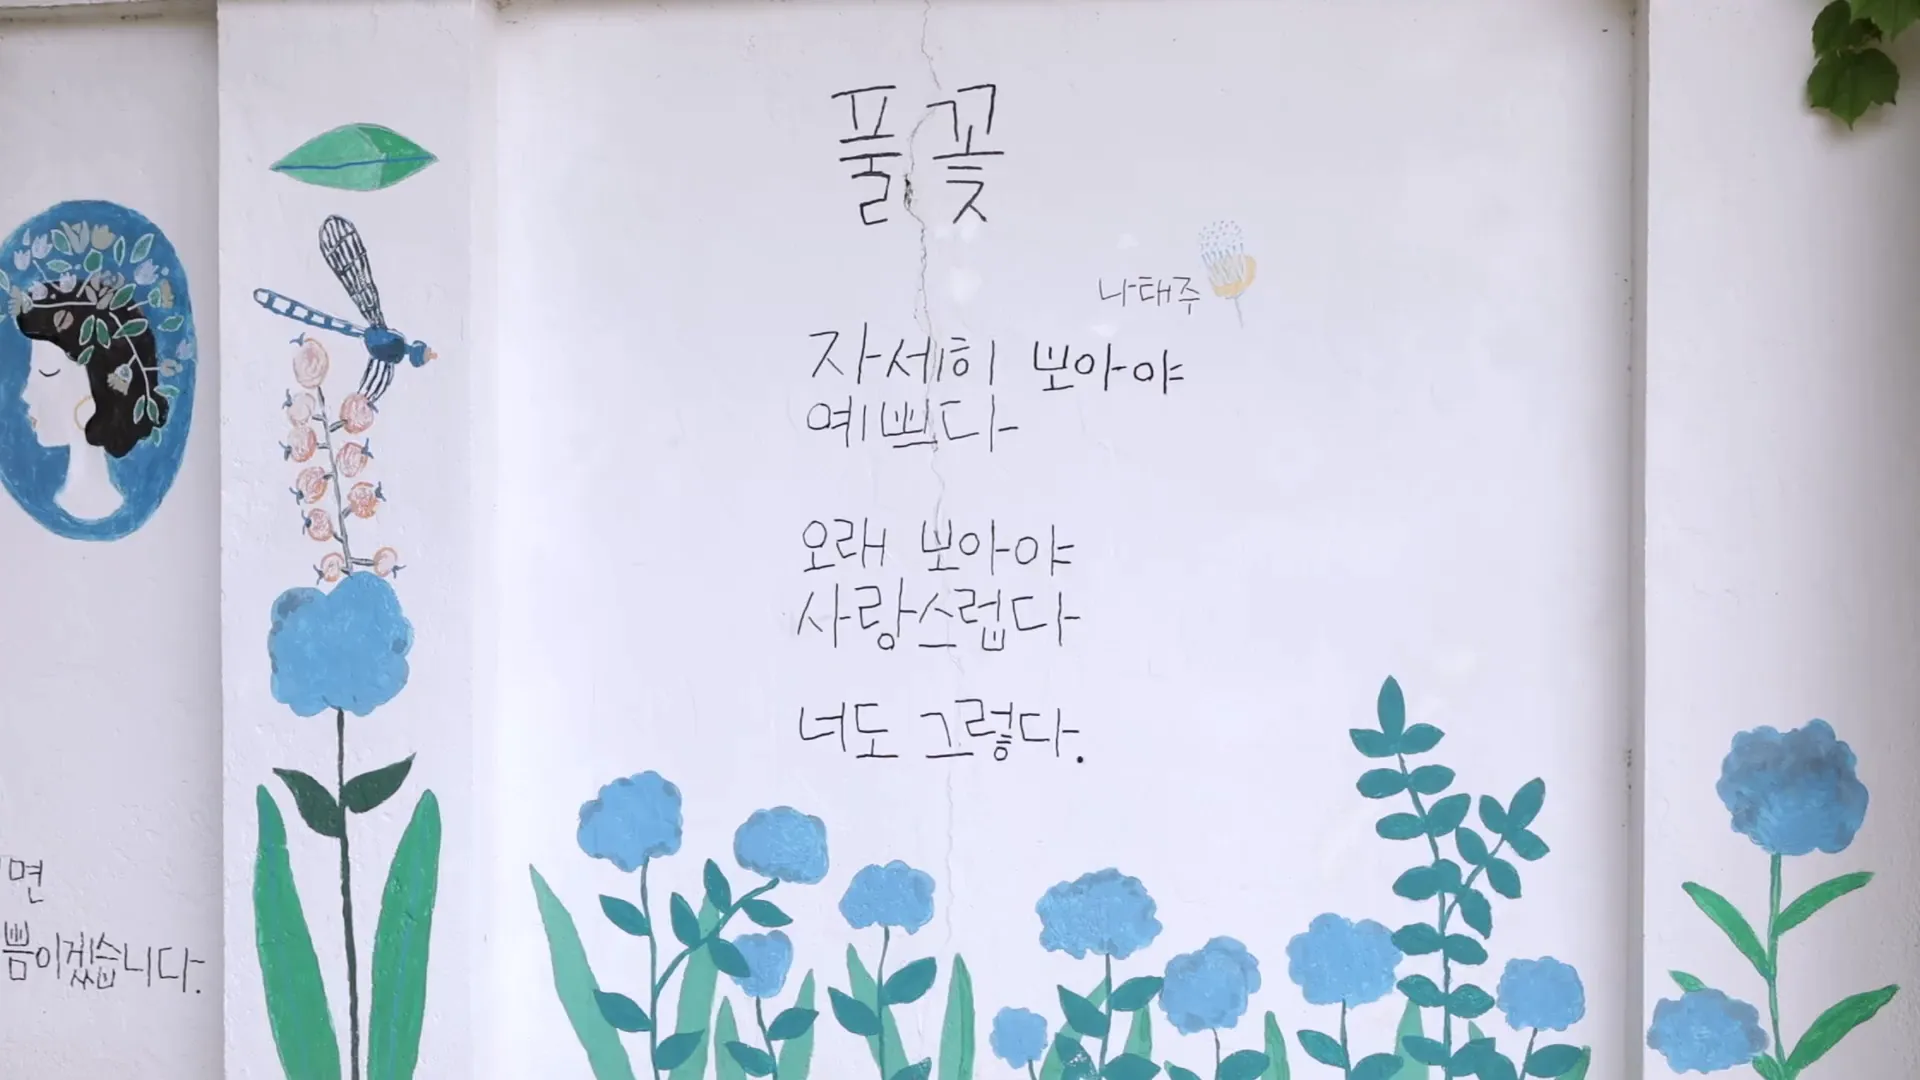 풀꽃
나태주
자세히 보아야
예쁘다
오래 보아야
사랑스럽다
너도 그렇다.
면
쁨이겠습니다.